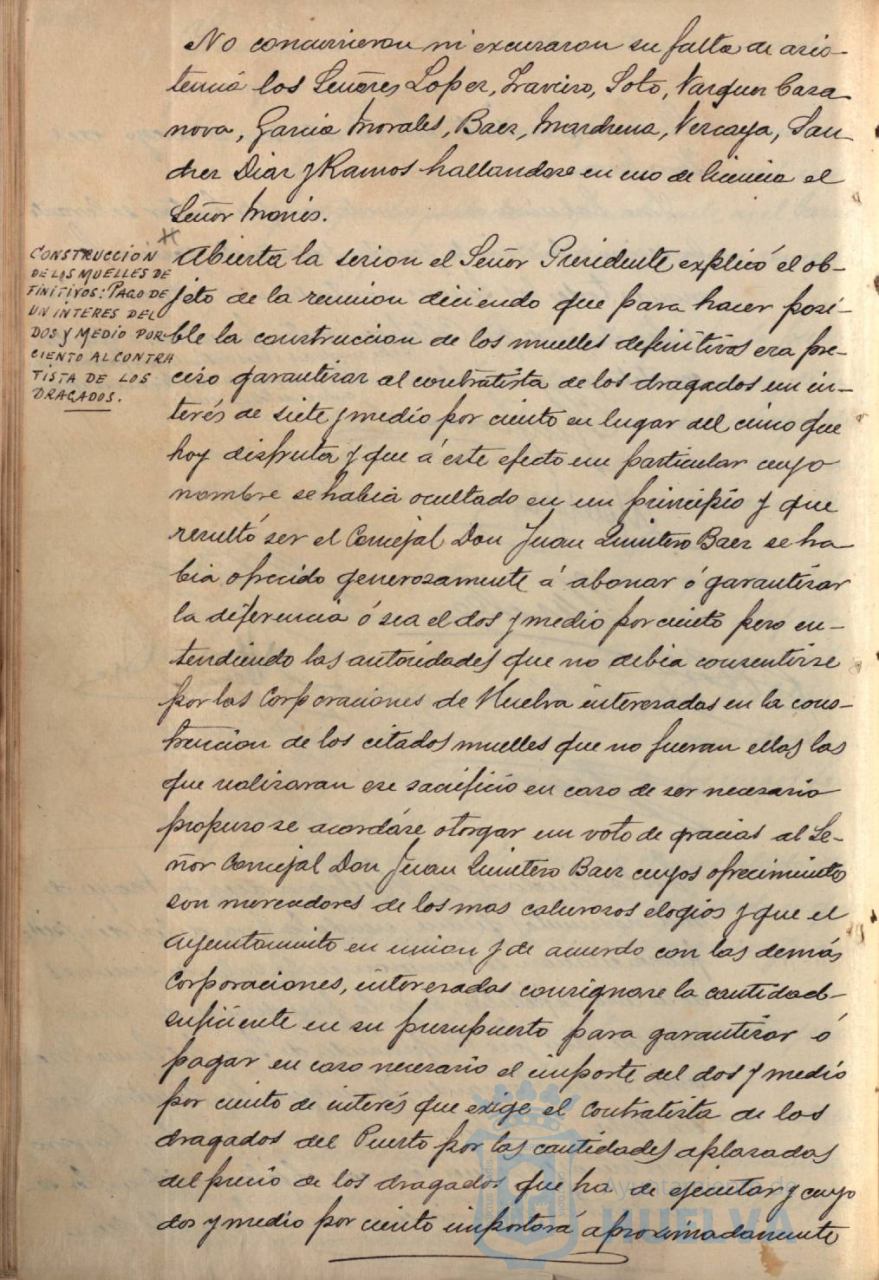 No concurrieron ni excusaron su falta de asis-
tencia los Señores Lopez, Traviero, Soto, Vazquez Casa
nova, Garcia Morales, Baez, Marchena, Vercaya, San
chez Diaz y Ramos hallandose en uso de licencia el
Señor Monis.
CONSTRUCCIÓN
DE LOS MUELLES DE
FINITIVOS: PAGO DE
UN INTERES DEL
DOS Y MEDIO POR
CIENTO AL CONTRA
TISTA DE LOS
DRAGADOS.
Abierta la sesion el Señor Presidente explicó el ob-
jeto de la reunion diciendo que para hacer posi-
ble la construccion de los muelles definitivos era pre-
ciso garantizar al contratista de los dragados un in-
terés de siete y medio por ciento en lugar del cinco que
hoy disfruta y que á este efecto un particular cuyo
nombre se habia ocultado en un principio y que
resultó ser el Concejal Don Juan Quintero Baez se ha
bia ofrecido generosamente á abonar ó garantizar
la diferencia ó sea el dos y medio por ciento pero en-
tendiendo las autoridades que no debia consentirse
por las Corporaciones de Huelva interesadas en la cons-
truccion de los citados muelles que no fueran ellas las
que realizaran ese sacrificio en caso de ser necesario
propuso se acordáse otorgar un voto de gracias al Se-
ñor Concejal Don Juan Quintero Baez cuyos ofrecimientos
son merecedores de los mas calurosos elogios y que el
Ayuntamiento en union y de acuerdo con las demás
Corporaciones, interesadas consignase la cantidad
suficiente en su presupuesto para garantizar ó
pagar en caso necesario el importe del dos y medio
por ciento de interés que exige el contratista de los
dragados del Puerto por las cantidades aplazadas
del precio de los dragados que ha de ejecutar y cuyo
dos y medio por ciento importará aproximadamente
Ayuntamiento de
HUELVA